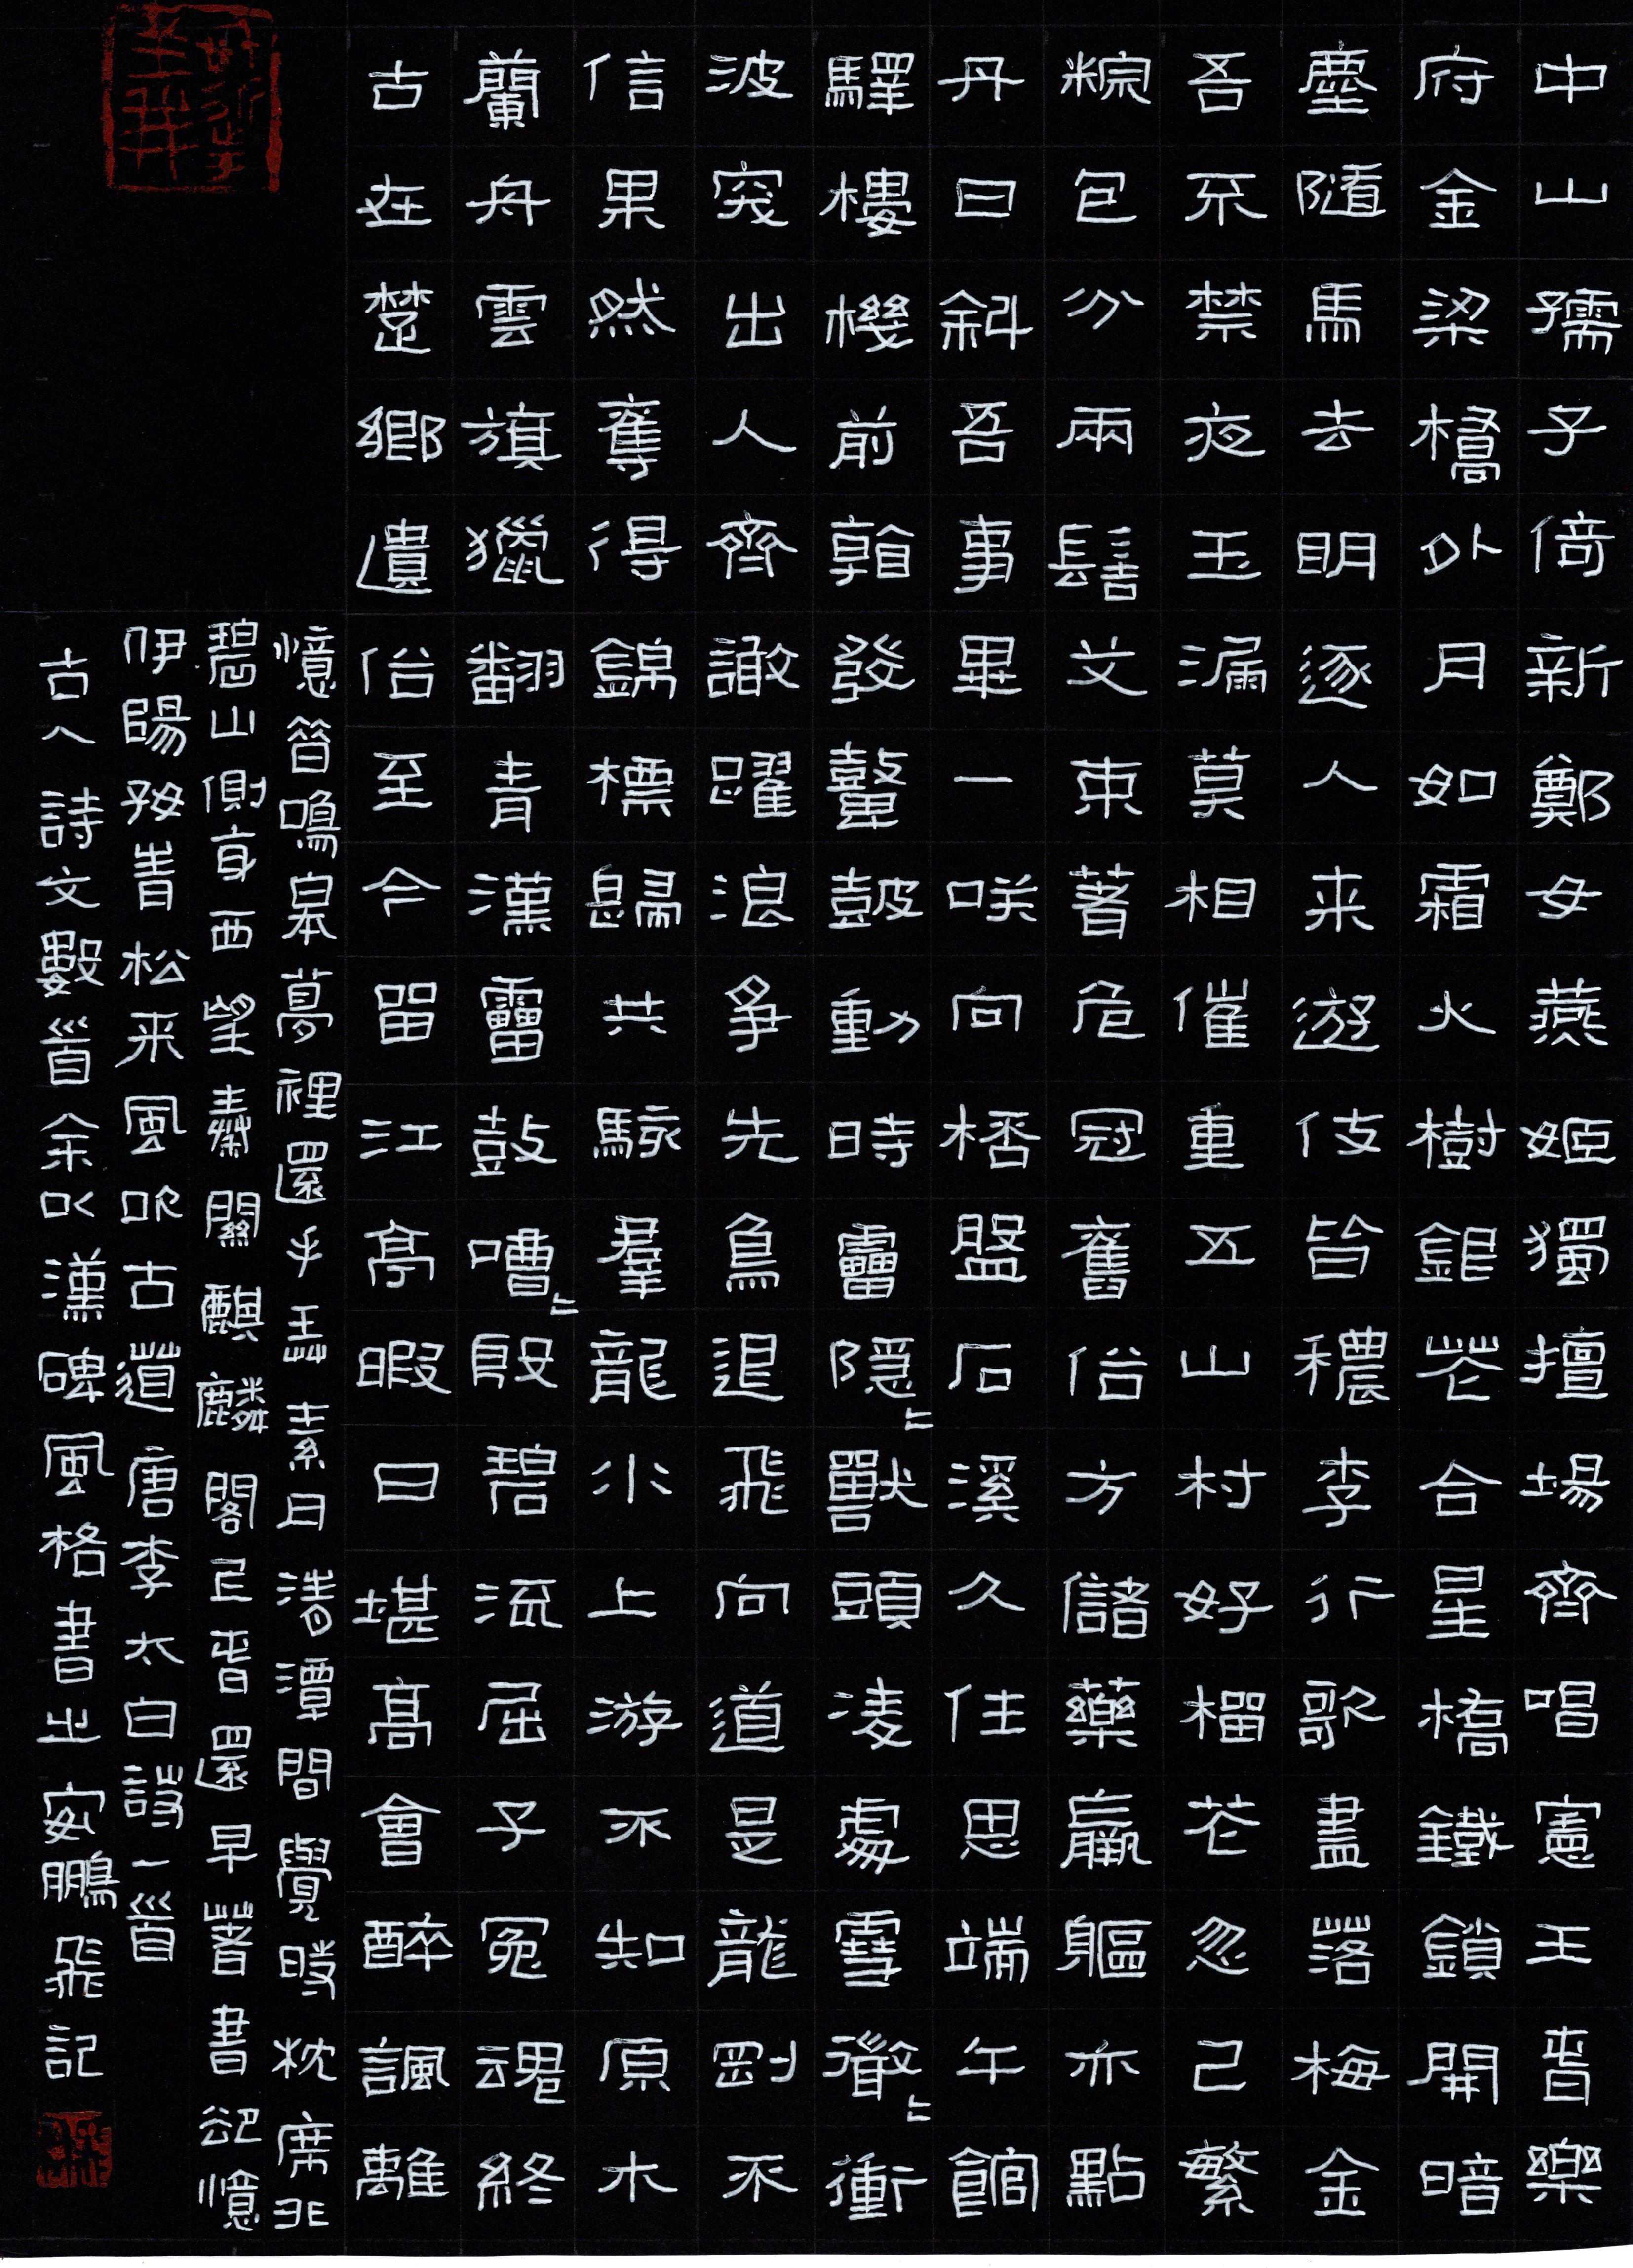 中山孺子倚新鄭女燕姬獨擅場齊唱憲王春樂
府金梁橋外月如霜火樹銀花合星橋鐵鎖開暗
塵隨馬去明逐人来遊伎皆穠李行歌盡落梅金
吾不禁夜玉漏莫相催重五山村好榴花忽已繁
粽包分兩髻艾束著危冠舊俗方儲藥羸軀亦點
丹日斜吾事畢一咲向桮盤石溪久住思端午館
驛樓機前看發鼙鼓動時雷隱〻獸頭凌處雪微〻衝
波突出人齊譀躍浪爭先鳥退飛向道是龍剛不
信果然奪得錦標歸共駭羣龍水上游不知原木
蘭舟雲旗獵翻青漢雷鼓嘈〻殷碧流屈子冤魂終
古在楚鄉遺俗至今留江亭暇日堪高會醉諷離
憶昔鳴皋夢裡還手弄素月清潭間覺時枕席非
碧山側身西望秦關麒麟閣正春還早著書却憶
伊陽好青松来風吹古道唐李太白詩一首
古人詩文數首余以漢碑風格書之安鵬飛記